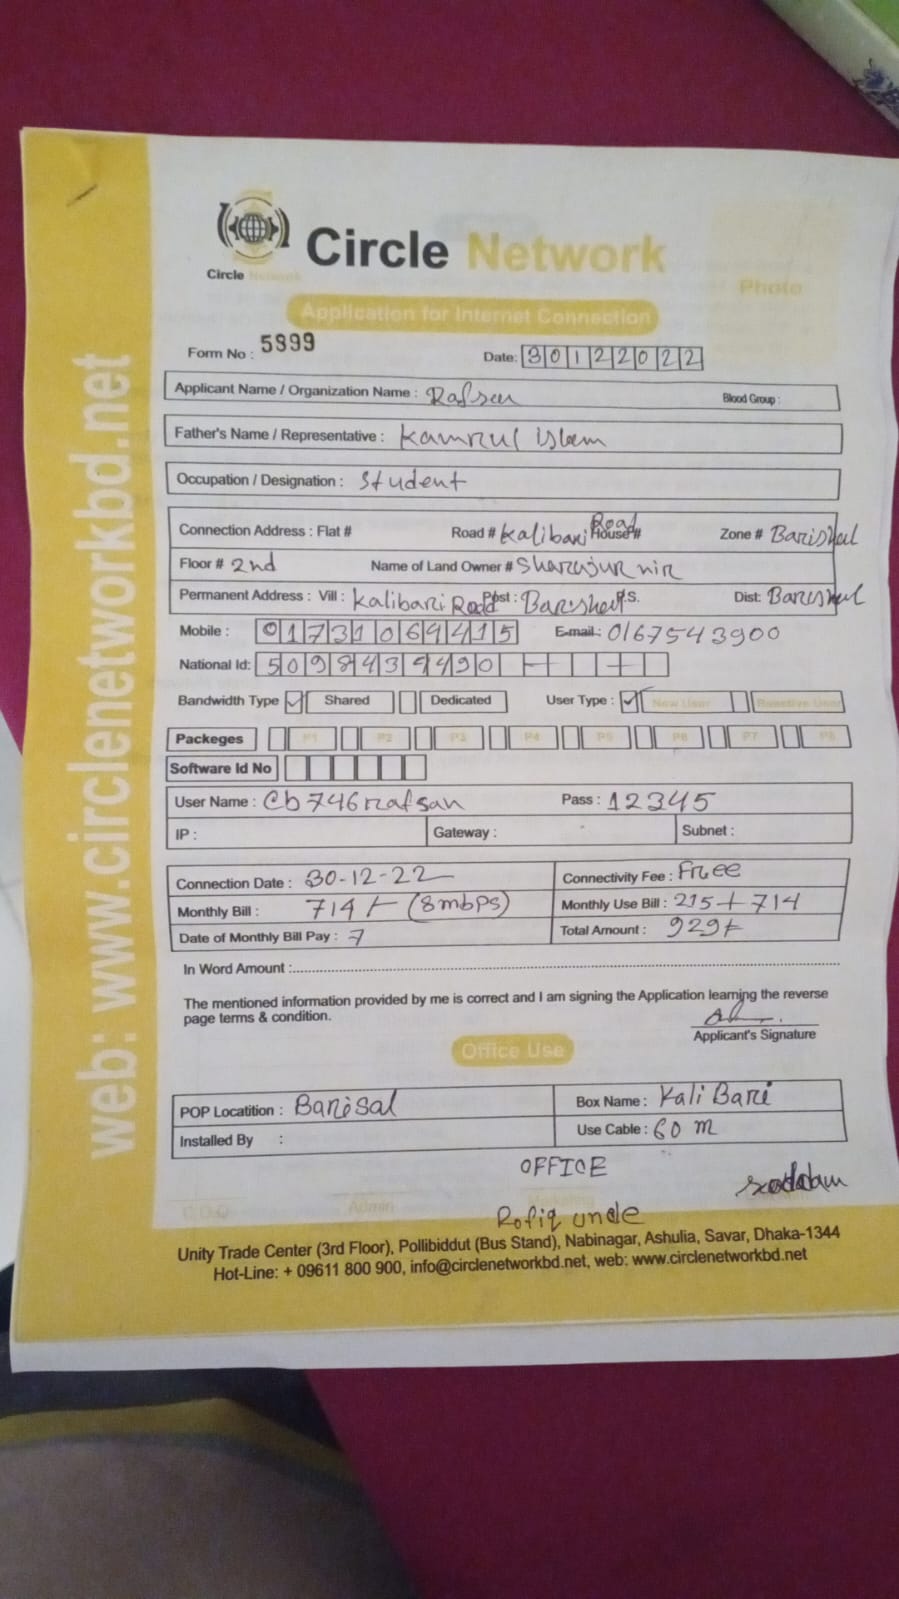 Circle Network
Circle Network
Photo
Application for Internet Connection
Form No : 5999
Date: 30122022
Applicant Name / Organization Name : Rafsan
Blood Group :
Father's Name / Representative : Kamrul islam
Occupation / Designation : student
Connection Address : Flat # Road # Kalibari Road House # Zone # Barishal
Floor # 2nd Name of Land Owner #
Permanent Address : Vill : Kalibari Road Post : Barishal P.S. Dist: Barishal
Mobile : 01731069415 E-mail : 0167543900
National Id:
Bandwidth Type Shared Dedicated User Type : New User Reactive User
Packeges P1 P2 P3 P4 P5 P6 P7 P8
Software Id No
User Name : cb746rafsan Pass : 12345
IP : Gateway : Subnet :
Connection Date : 30-12-22 Connectivity Fee : Free
Monthly Bill : 714/- (8mbps) Monthly Use Bill : 215+714
Date of Monthly Bill Pay : 7 Total Amount : 929/-
In Word Amount :
The mentioned information provided by me is correct and I am signing the Application learning the reverse
page terms & condition.
Applicant's Signature
Office Use
POP Locatition : Barisal Box Name : Kali Bari
Installed By : Use Cable : 60 m
OFFICE
saddam
C.O.O Admin Marketing
Rofiq uncle
Unity Trade Center (3rd Floor), Pollibiddut (Bus Stand), Nabinagar, Ashulia, Savar, Dhaka-1344
Hot-Line: + 09611 800 900, info@circlenetworkbd.net, web: www.circlenetworkbd.net
web: www.circlenetworkbd.net